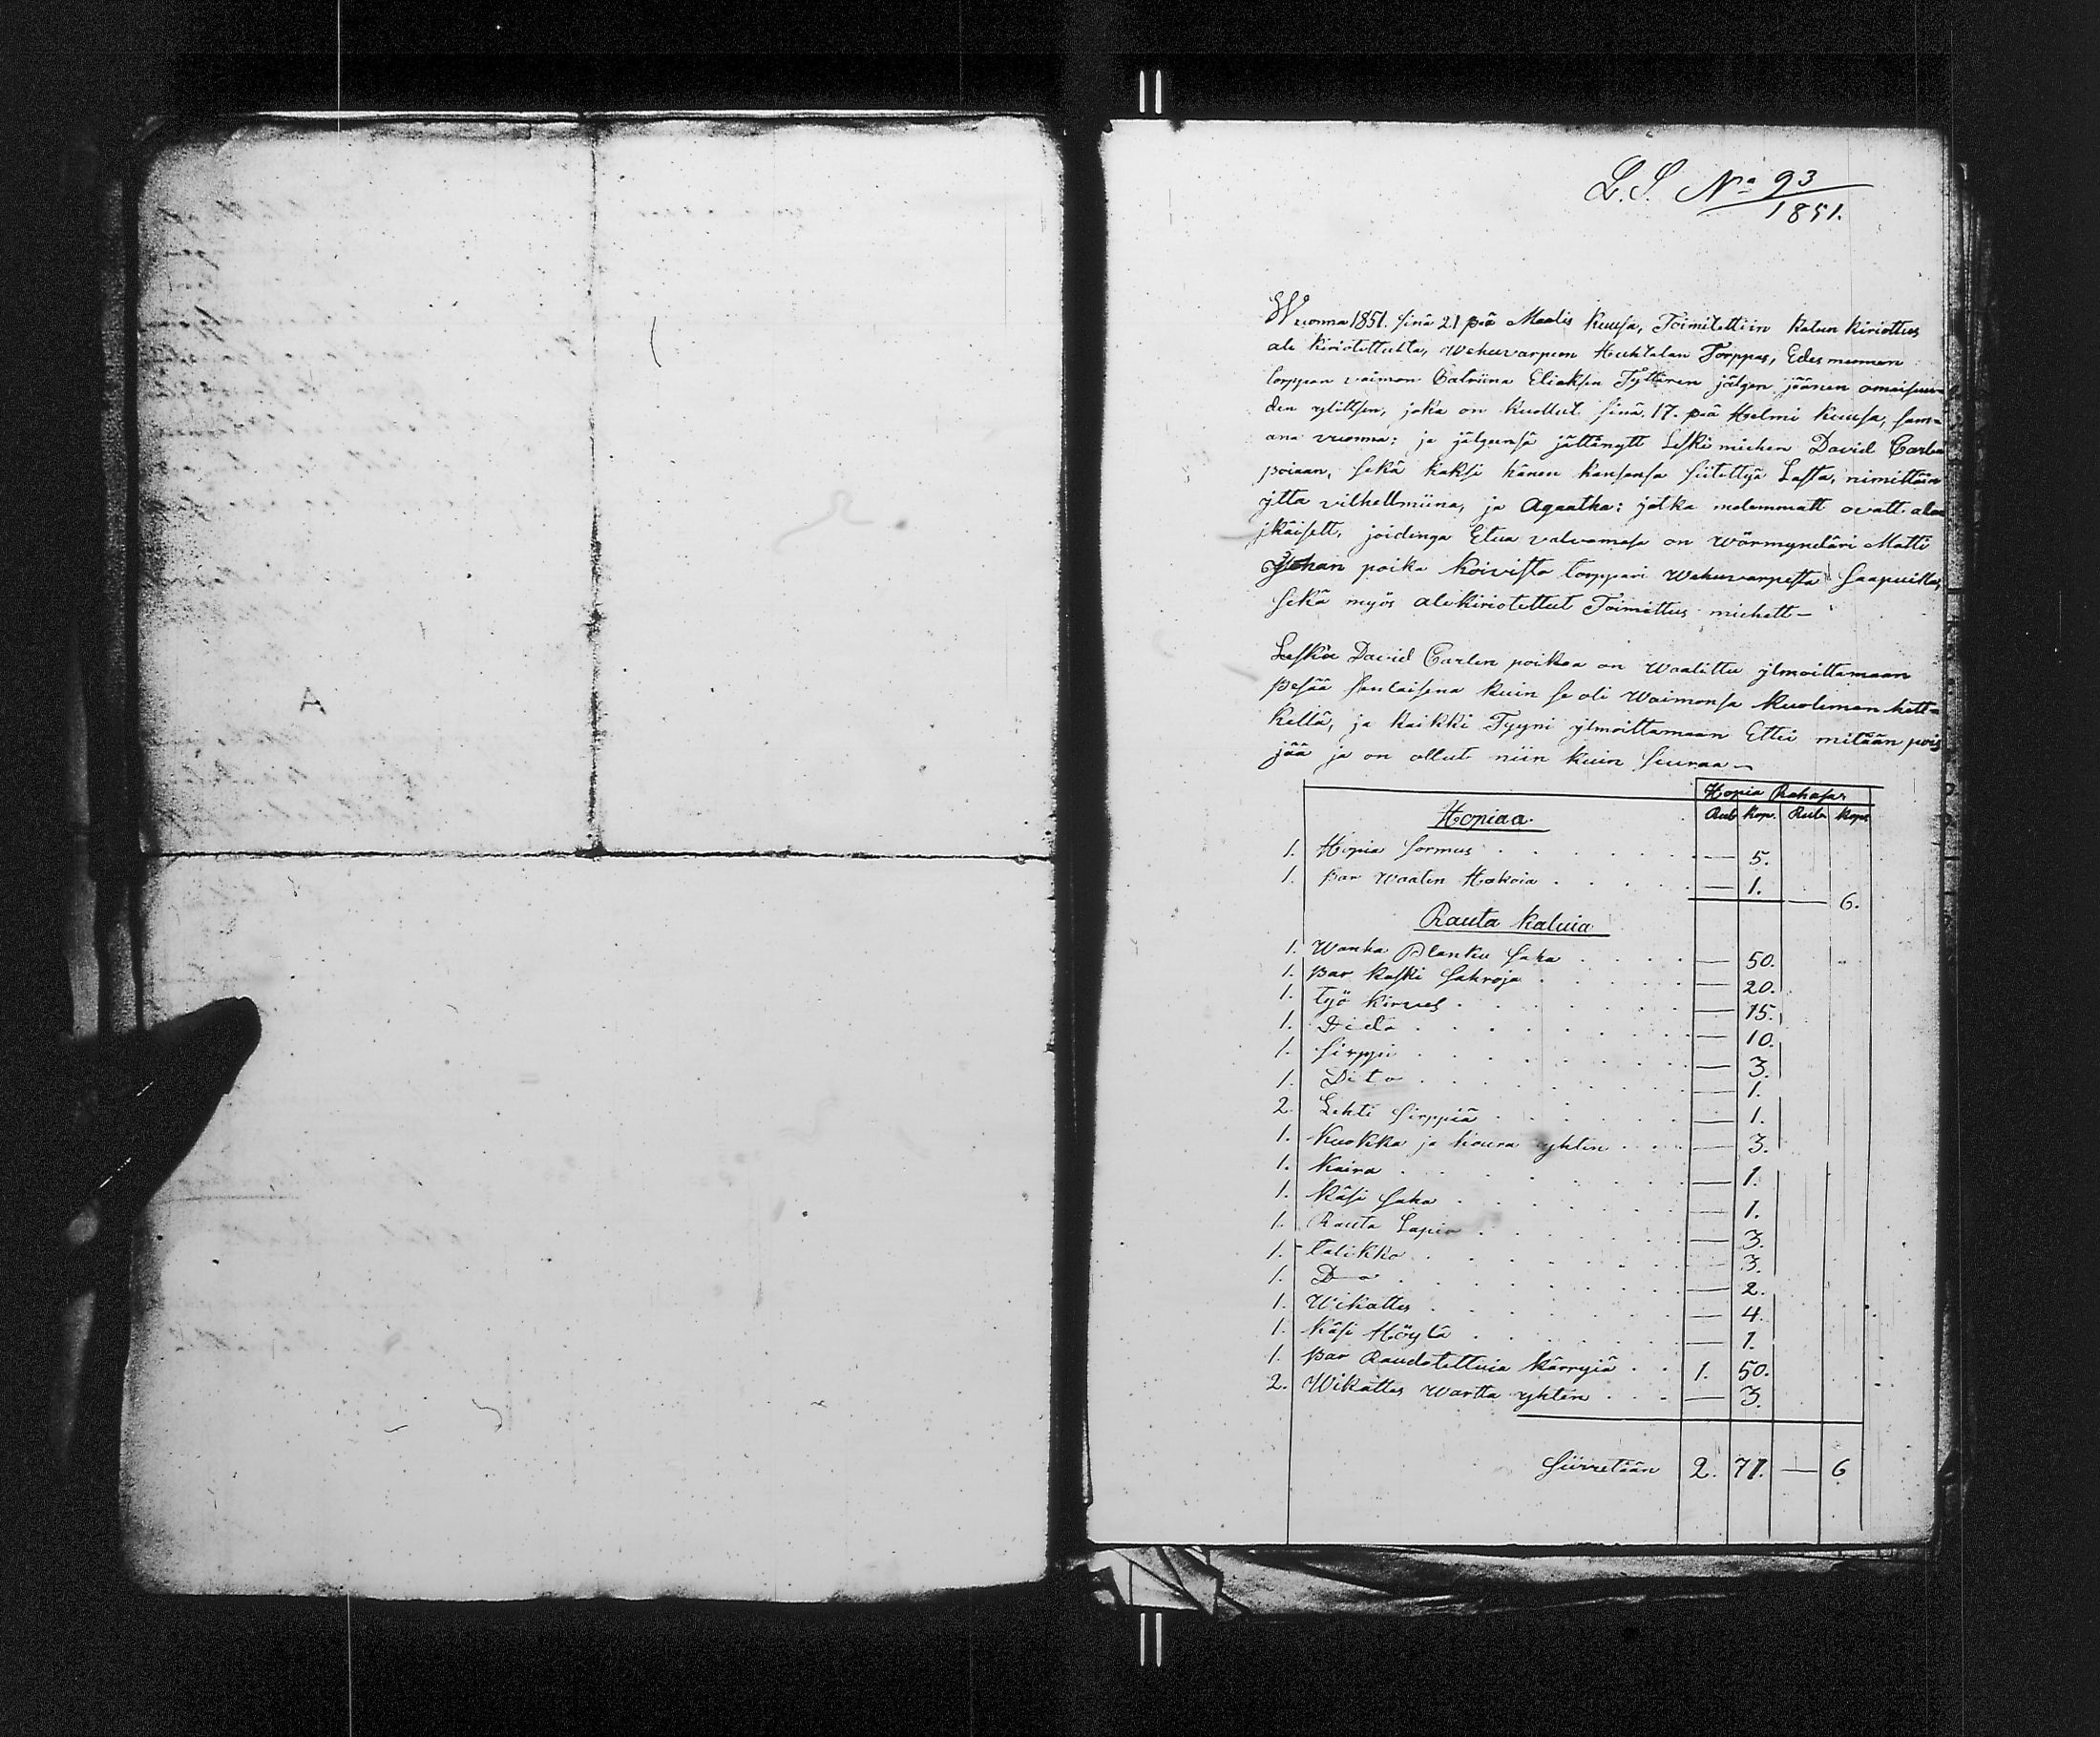 L.S. No 93
1851.
Wuonna 1851. sinä 21 pää Maalis kuusa, Toimitettiin kalun kirioittus
ale kiriotettuilta, Wehuvarpeen Huhtalan Torppas, Edes mennen
torpparin vaimon Catriina Eliaksen Tyttären jälgen jäänen omaisuu-
den ylittsen, joka on kuollut sinä 17. pää Helmi kuusa, sam-
ana vuonna; ja jälgeensä jättänytt Leski miehen David Carlen
poiaan, sekä kaksi hänen kansansa siitettyä Lasta, nimittäin
ytta vilhellmiina, ja Agaatha; jotka molemmatt ovatt ala
jkäisett, joidenga Etua valvomasa on wörmyndäri Matti
Johan poika Koivisto torppari Wehuvarpesta saapuilla,
sekä myös alekiriotettut Toimittus miehett-
Leskä David Carlen poikaa on Waalittu ylmoittamaan
pesää senlaisena kuin se oli Waimonsa kuoleman hett-
kellä, ja kaikki Tyyni ylmoittamaan Ettei mitään pois
jää ja on ollut niin kuin seuraa-
Hopia Rahasa
Rub Kop. Rub. Kop.
Hopiaa.
1. Hopia sormus — 5.
1. par Waaten Hakoia — 1. — 6.
Rauta kaluia
1. Wanha Planku saha — 50.
1. par kaski sahroja — 20.
1. työ kirves — 15.
1. Dido — 10.
1. sirppi — 3.
1. Dito — 1.
2. Lehti sirppiä — 1.
1. kuokka ja houra yhten — 3.
1. kaira — 1.
1. käsi saha — 1.
1. Rauta Lapio — 3.
1. talikko — 3.
1. D—o — 2.
1. Wikattes — 4.
1. käsi Höylä — 1.
1. par Raudotettuia kärryiä 1. 50.
2. Wikattes Wartta yhten — 3.
siirretään 2. 71. — 6
A